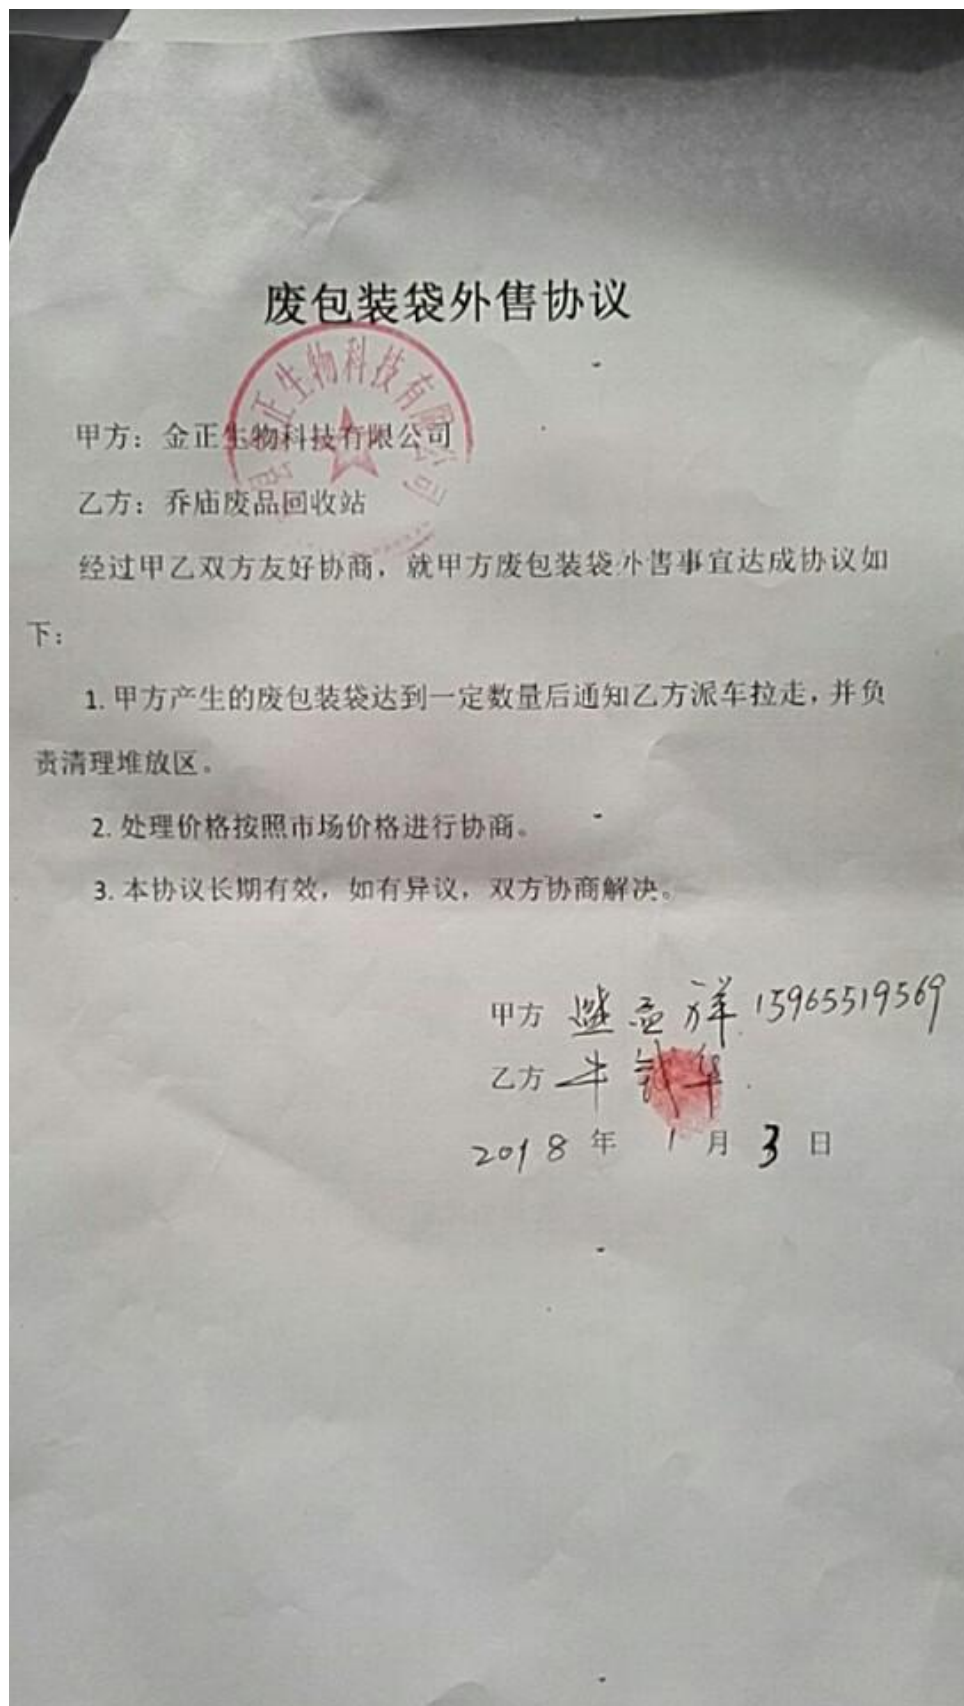 废包装袋外售协议
正生物科技有限公司
甲方：金正生物科技有限公司
乙方：乔庙废品回收站
经过甲乙双方友好协商，就甲方废包装袋外售事宜达成协议如
下：
1. 甲方产生的废包装袋达到一定数量后通知乙方派车拉走，并负
责清理堆放区。
2. 处理价格按照市场价格进行协商。
3. 本协议长期有效，如有异议，双方协商解决。
甲方 祥 15965519569
乙方 牛 华
2018 年 1 月 3 日